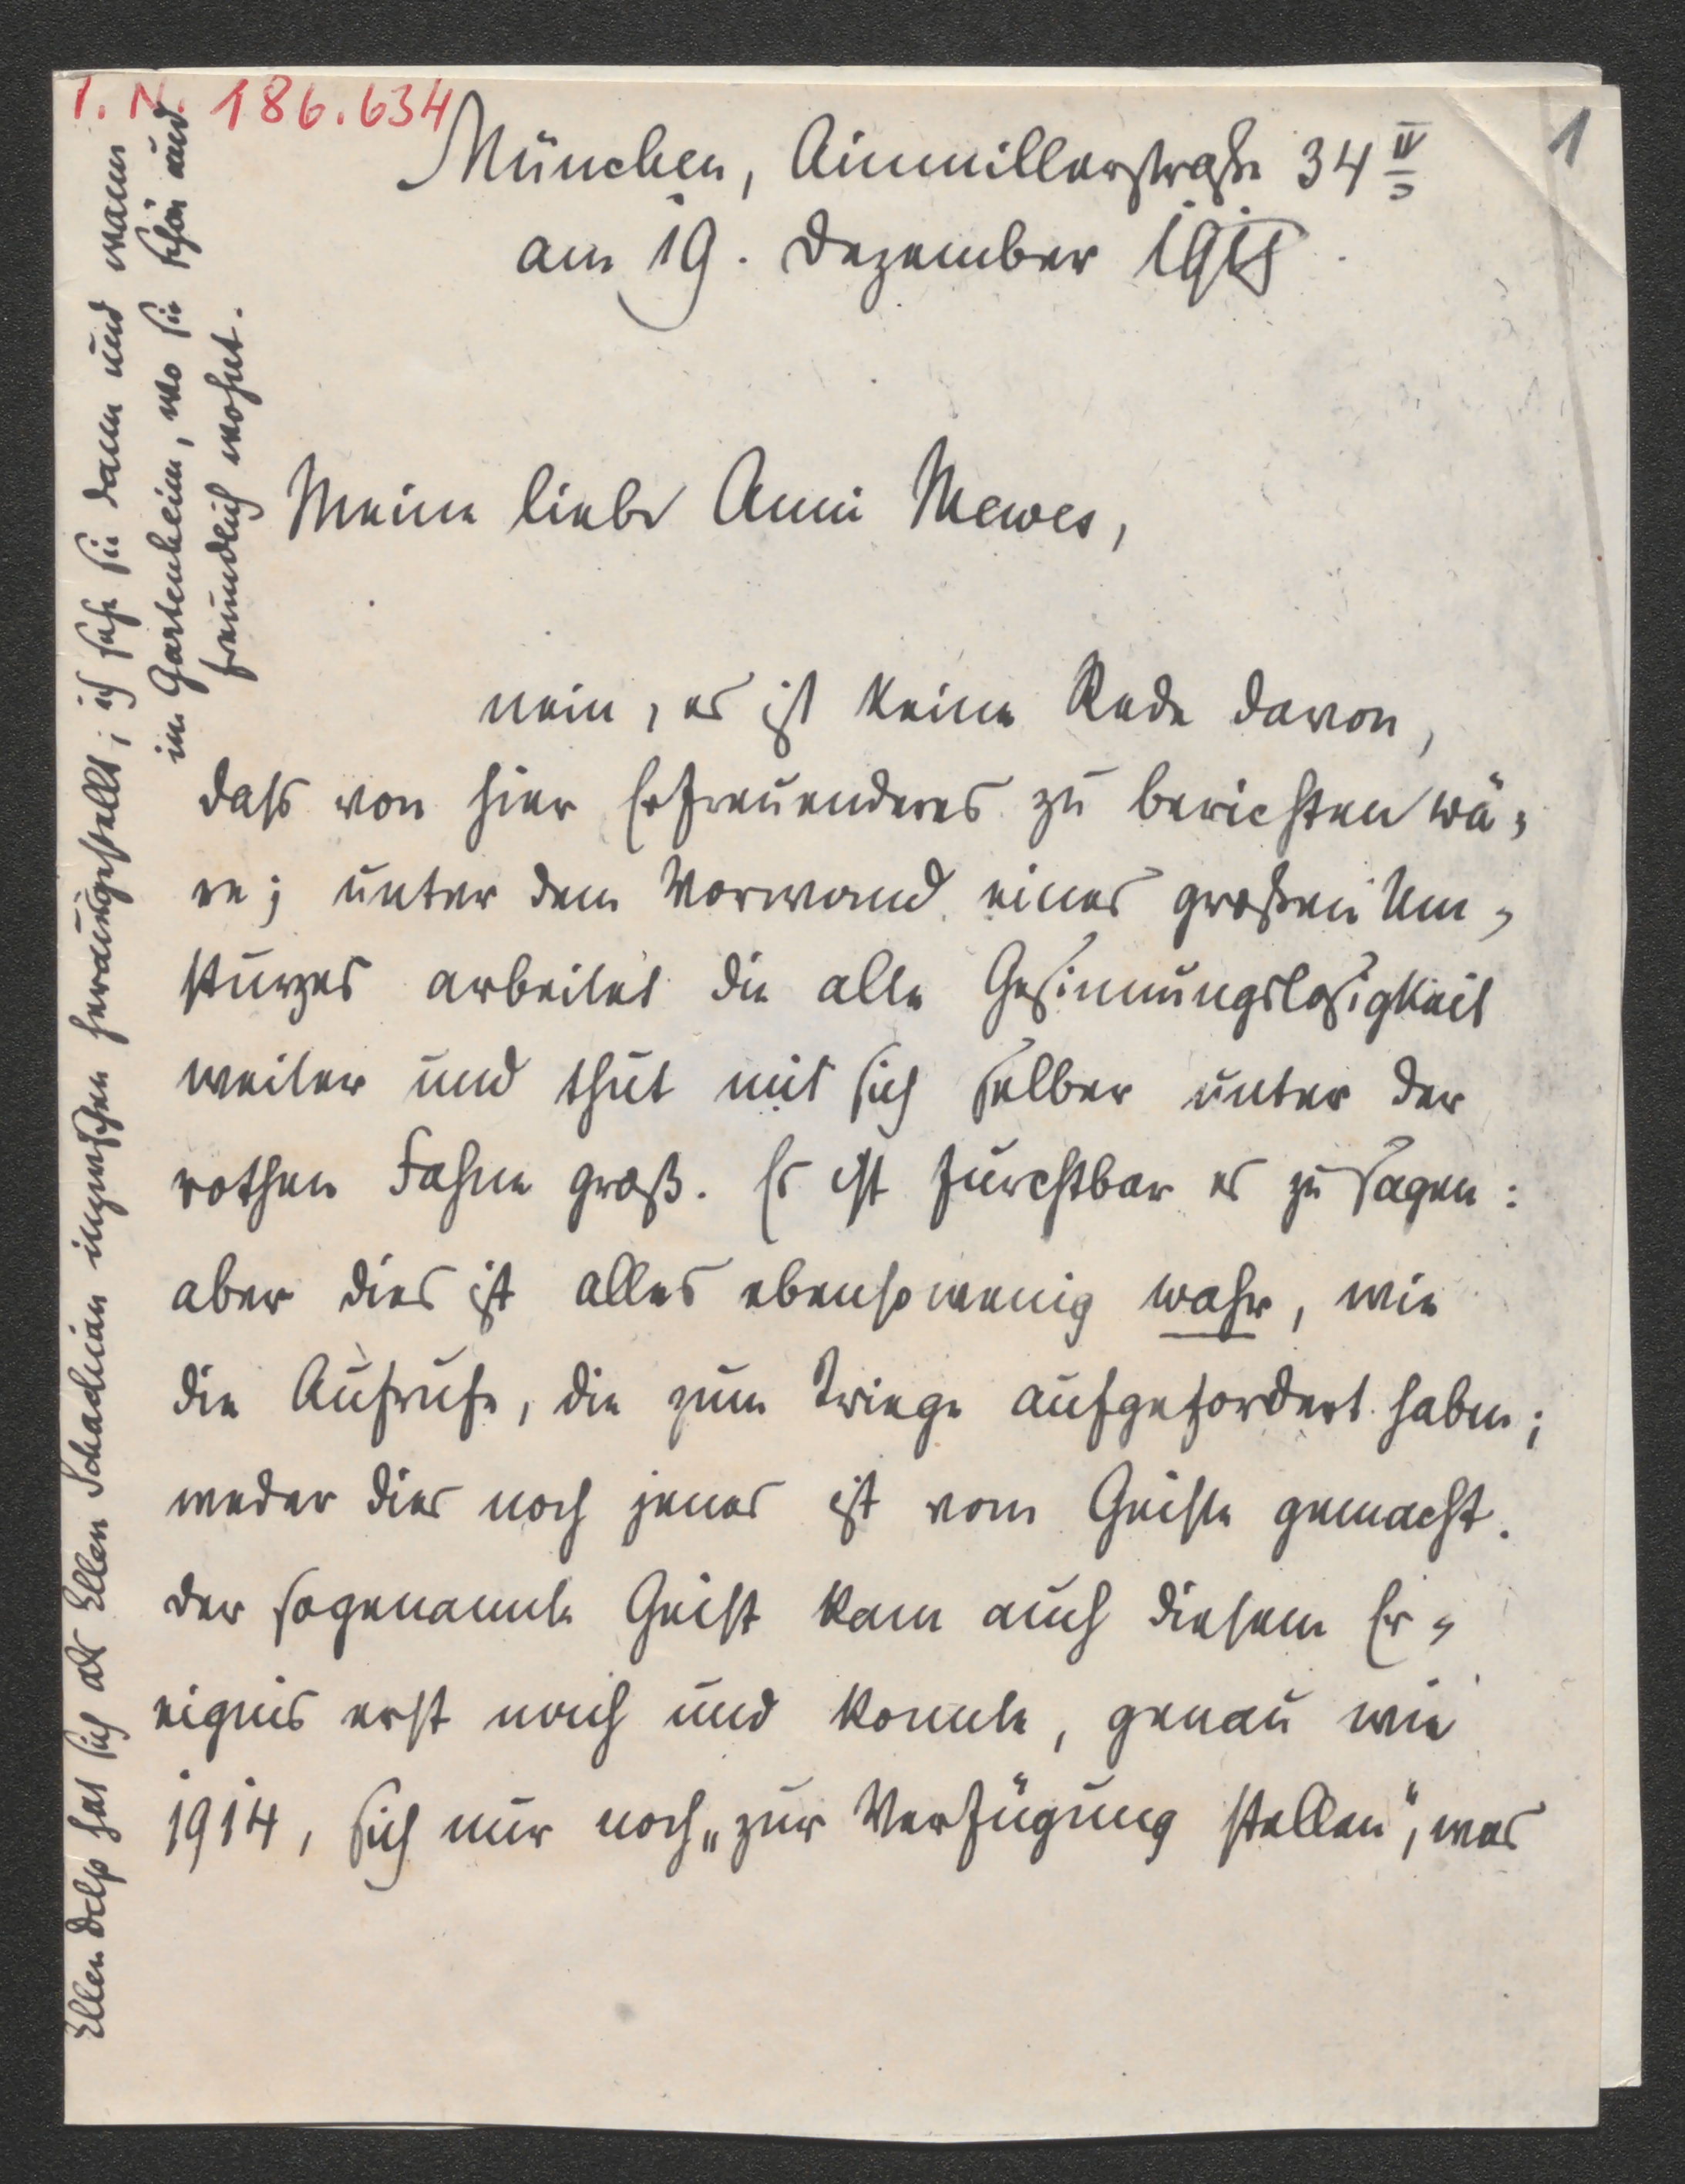 I. N. 186.634
1
München, Ainmillerstraße 34 IV
am 19. Dezember 1918.
Meine liebe Anni Mewes,
nein, es ist keine Rede davon,
dass von hier Erfreuenderes zu berichten wä=
re; unter dem Vorwand eines großen Um=
sturzes arbeitet die alte Gesinnungslosigkeit
weiter und thut mit sich selber unter der
rothen Fahne groß. Es ist furchtbar es zu sagen:
aber dies ist alles ebensowenig wahr, wie
die Aufrufe, die zum Kriege aufgefordert haben;
weder dies noch jenes ist vom Geiste gemacht.
Der sogenannte Geist kam auch diesem Er=
eignis erst nach und konnte, genau wie
1914, sich nur noch „zur Verfügung stellen“, was
Ellen Delp hat sich als Ellen Schachian inzwischen herausgestellt; ich sehe sie dann und wann
im Gartenheim, wo sie schön und
freundlich wohnt.